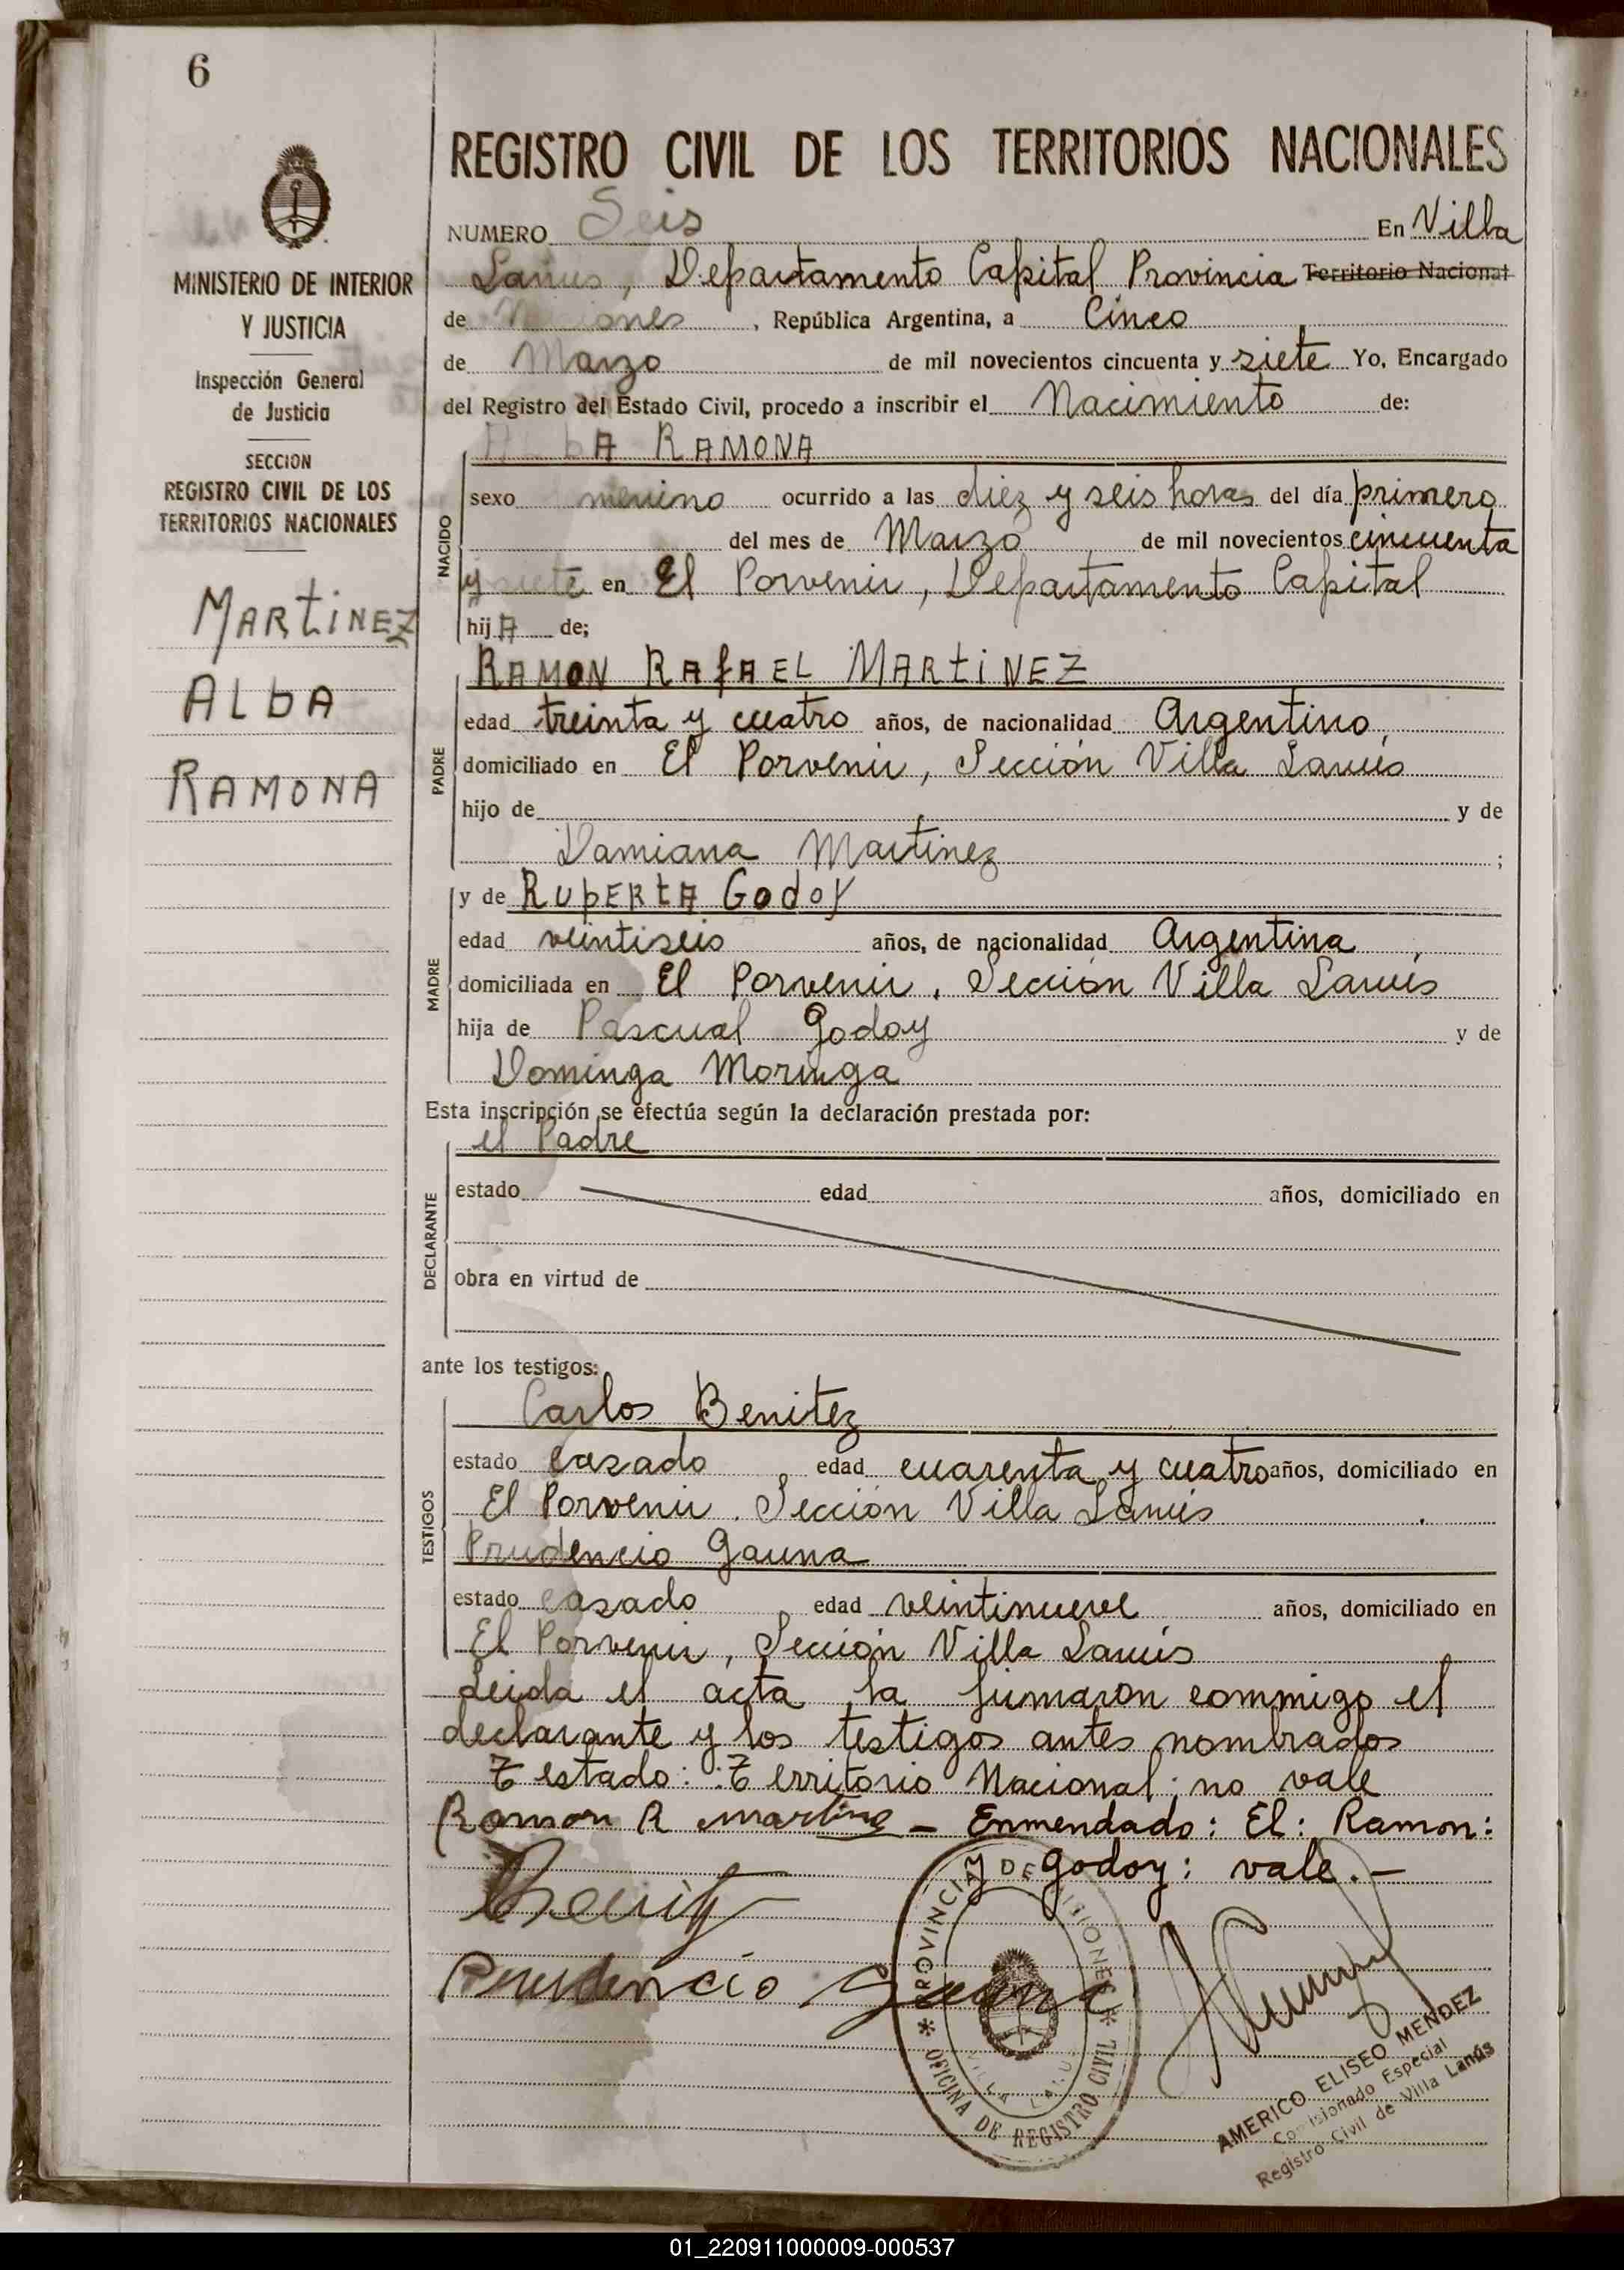 6
REGISTRO CIVIL DE LOS TERRITORIOS NACIONALES
NUMERO Seis En Villa
Lanus, Departamento Capital Provincia Territorio Nacional
de Misiones, República Argentina, a Cinco
de Marzo de mil novecientos cincuenta y siete Yo, Encargado
del Registro del Estado Civil, procedo a inscribir el Nacimiento de:
MINISTERIO DE INTERIOR
Y JUSTICIA
Inspección General
de Justicia
SECCION
REGISTRO CIVIL DE LOS
TERRITORIOS NACIONALES
MARTINEZ
ALbA
RAMONA
NACIDO
ALbA RAMONA
sexo menino ocurrido a las diez y seis horas del día primero
del mes de Marzo de mil novecientos cincuenta
y siete en El Porvenir, Departamento Capital
hijA de;
PADRE
RAMON RAfAEL MARtiNEZ
edad treinta y cuatro años, de nacionalidad Argentino,
domiciliado en El Porvenir, Sección Villa Lanús
hijo de y de
Damiana Martinez ;
MADRE
y de RUpERtA GodoY
edad veintiseis años, de nacionalidad Argentina,
domiciliada en El Porvenir, Sección Villa Lanús
hija de Pascual Godoy y de
Dominga Moringa
Esta inscripción se efectúa según la declaración prestada por:
DECLARANTE
el Padre
estado edad años, domiciliado en
obra en virtud de
ante los testigos:
TESTIGOS
Carlos Benitez
estado casado, edad cuarenta y cuatro años, domiciliado en
El Porvenir. Sección Villa Lanús
Prudencio Gauna
estado casado, edad veintinueve años, domiciliado en
El Porvenir, Sección Villa Lanús
Leida el acta la firmaron commigo el
declarante y los testigos antes nombrados
Testado: :Territorio Nacional: no vale
Ramon R Martinez — Enmendado: El: Ramon:
y Godoy: vale.—
Prudencio Gauna
PROVINCIA DE MISIONES
OFICINA DE REGISTRO CIVIL
VILLA LANUS
AMERICO ELISEO MENDEZ
Comisionado Especial
Registro Civil de Villa Lanús
01_220911000009-000537